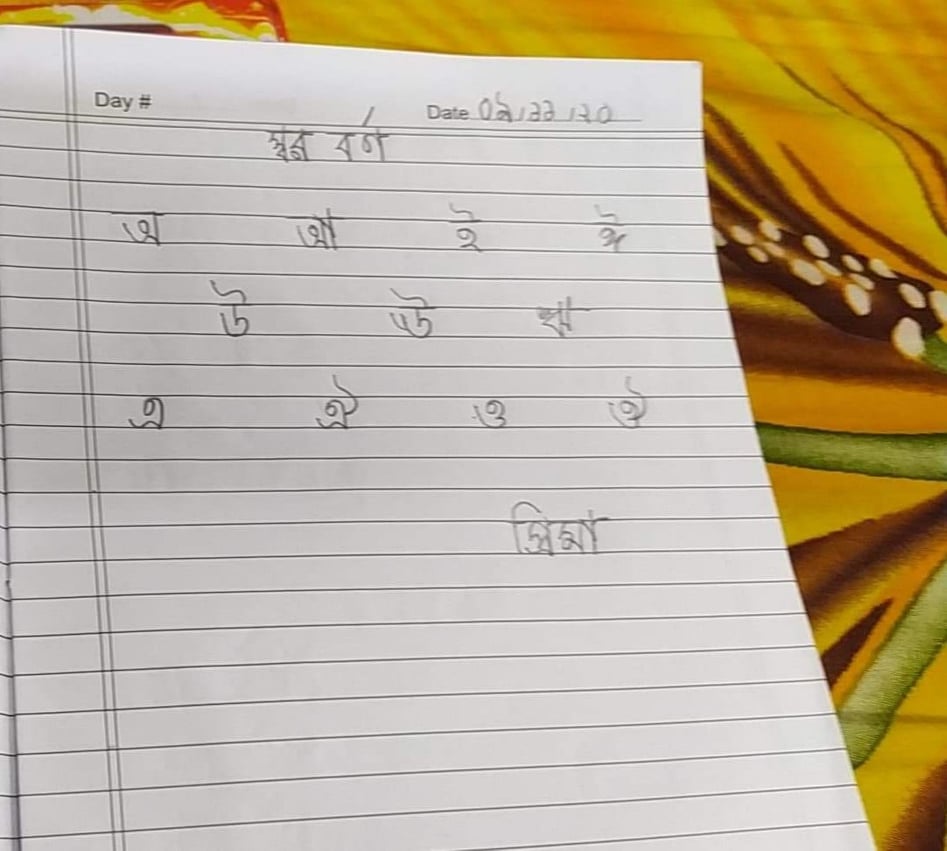 Day #
Date ০২/১১/২০
স্বর বর্ণ
অ আ ই ঈ
উ ঊ ঋ
এ ঐ ও ঔ
প্রিমা